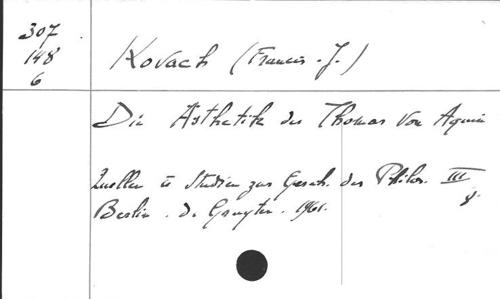 307
148
6
Kovach (Francis . J.)
Die Ästhetik des Thomas von Aquin
Quellen u Studien zur Gesch. der Philos. III
8.
Berlin . de Gruyter . 1961.